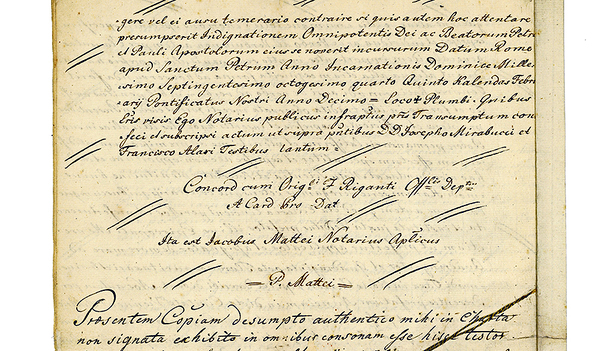 gere vel ei ausu temerario contraire si quis autem hoc attentare
prerumpserit Indignationem Omnipotentis Dei ac Beatorum Petri
et Pauli Apostolorum eius se noverit incursurum Datum Rome
apud Sanctum Petrum Anno Incarnationis Dominice Mille
simo Septingentesimo octogesimo quarto Quinto Kalendas Febr
arij Pontificatus Nostri Anno Decimo = Loco + Plumbi. Quibus
Ego Notarius publicus infraptus pns Transumptum con
feci et subscripsi actum ut supra pntibus DD Josepho Mirabucci et
Francisco Alari Testibus tantum.
Concord cum Origli F Riganti Offlis Deptus
A Card Pro Dat
Ita est Jacobus Mattei Notarius Aplicus
= P. Mattei =
Præsentem Copiam desumpto authentico mihi in Charta
non signata exhibito in omnibus consonam esse hisce testor